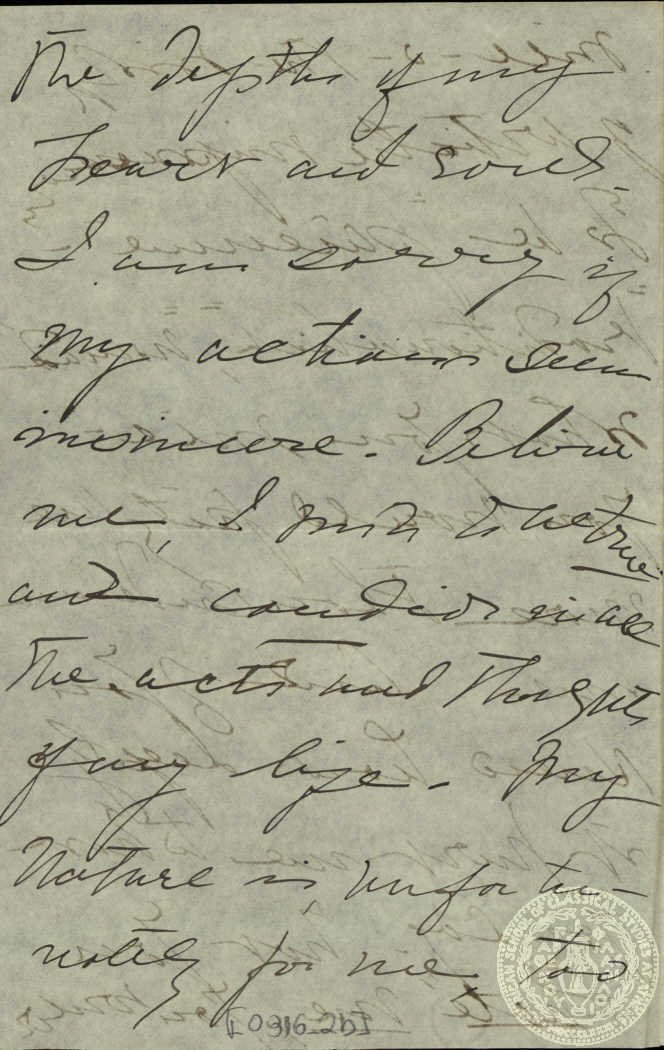 The depths of my
heart and soul.
I am sorry if
my actions seem
insincere. Believe
me, I wish to be true
and candid in all
the acts and thoughts
of my life. My
nature is, unfortu-
nately for me, too
[0316-2b]